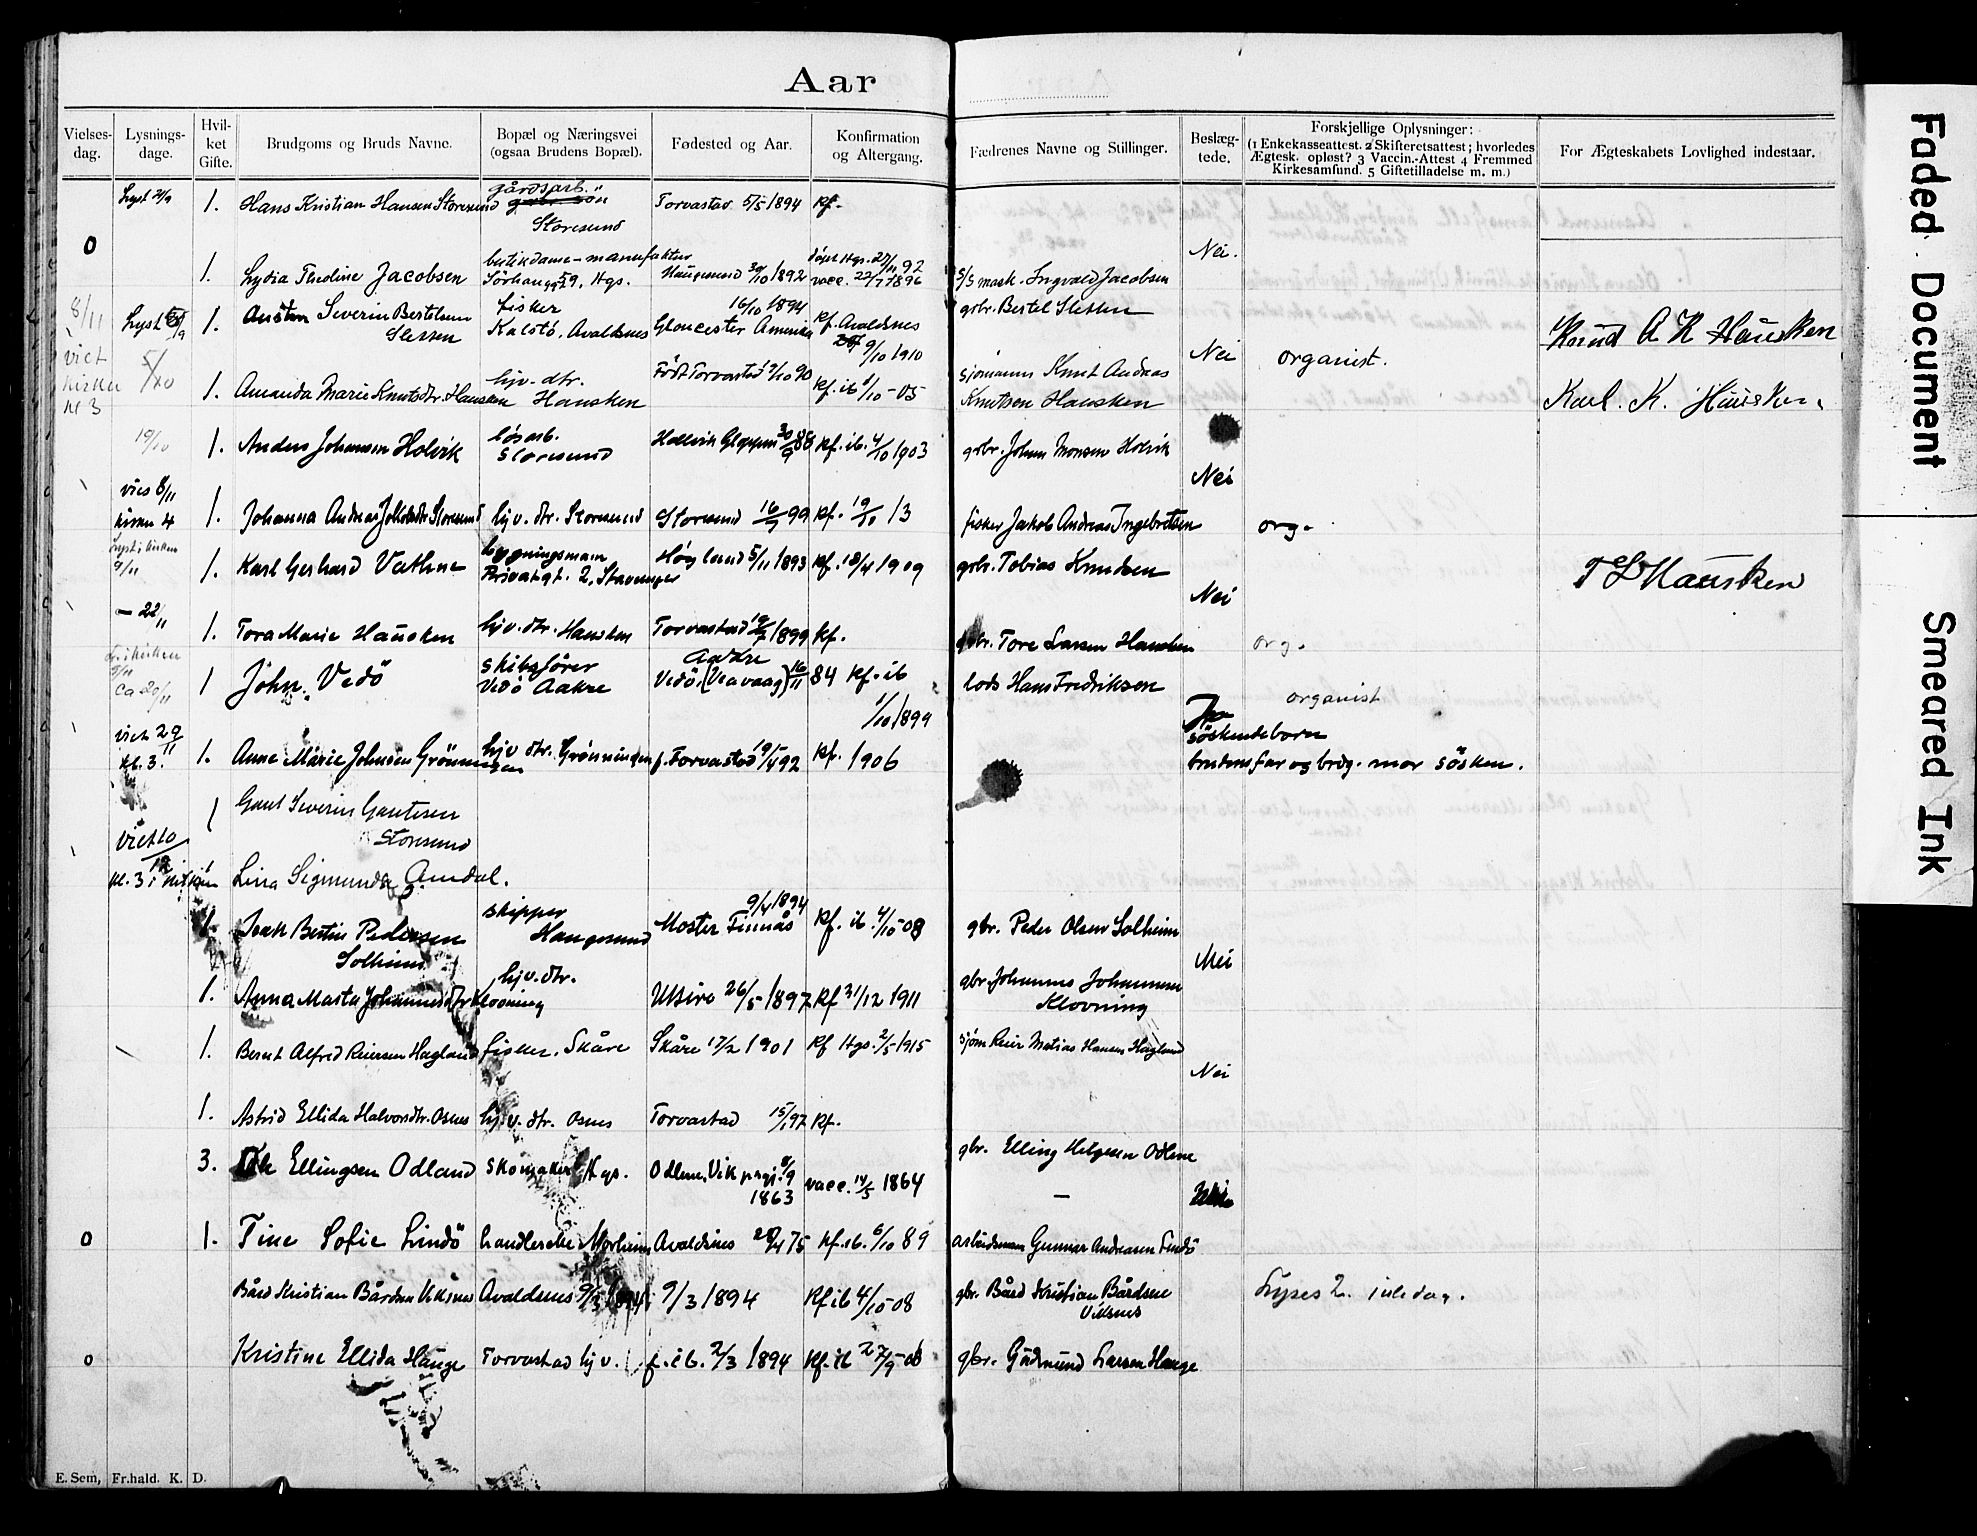 Aar
Vielses-dag. Lysnings-dage. Hvil-ket Gifte. Brudgoms og Bruds Navne. Bopæl og Næringsvei (ogsaa Brudens Bopæl). Fødested og Aar. Konfirmation og Altergang. Fædrenes Navne og Stillinger. Beslæg-tede. Forskjellige Oplysninger: (1 Enkekasseattest. 2 Skifteretsattest; hvorledes Ægtesk. opløst? 3 Vaccin.-Attest 4 Fremmed Kirkesamfund. 5 Giftetilladelse m. m.) For Ægteskabets Lovlighed indestaar.
Lyst 21/9 1. Hans Kristian Hansen Storesund gårdsarb. Storesund Torvastad 5/5 1894 kf.
0 Nei.
1. Lydia Thodine Jacobsen butikdame-manufaktur Sörhaugg 59, Hgs. Haugesund 30/10 1892 döpt Hgs. 27/11 92 vacc. 22/7 1896 s/s mask. Ingvald Jacobsen
8/11 Lyst 1. Austen Severin Bertelsen Sletten fisker Kalstö, Avaldsnes 16/10 1894 Gloucester Amerika kf. Avaldsnes 9/10 1910 gbr. Bertel Sletten Knud A K Hausken
viet kirken kl 3 5/10 Nei organist.
1. Amanda Marie Knutsdtr. Hausken hjv. dtr. Hausken Födt Torvastad 9/10 90 kf. ib 1/10-05 sjömann Knut Andreas Knutsen Hausken Karl. K. Hausken
19/10 1. Anders Johannsen Holvik lösarb. Storesund Hollvik Gloppen 30/9 88 kf. ib. 4/10 1903 gbr. Johan Monsen Holvik
Nei
vies 8/11 kirken 4 1. Johanna Andrea Jakobsdtr Storesund hjv. dtr. Storesund Storesund 16/7 99 kf. 19/10 13 fisker Jakob Andreas Ingebretsen org.
Lyst i kirken 9/11 1. Karl Gerhard Vathne bygningsmann Privatgt. 2, Stavanger Høyland 5/11 1893 kf. 18/4 1909 gbr. Tobias Knudsen T L Hausken
Nei
- 22/11 1. Tora Marie Hausken hjv. dtr. Hausken Torvastad 1899 kf. gbr. Tore Larsen Hausken org.
Ca 20/11 1 John Vedö skibsförer Vedö Aakre Aakre Vedö, (Veavaag) 16/11 84 kf. ib 1/10 1899 lods Hans Fredriksen organist
söskendebarn
viet 29/11 kl. 3. 1. Anne Marie Johnsen Grönningen hjv dtr. Grönningen f. Torvastad 19/4 92 kf. 1906 brudens far og brdg. mor sösken.
1 Gaut Severin Gautesen Storesund
viet 10/12 kl. 3 i kirken Lina Sigmunda Amdal.
1. Isak Bertin Pedersen Solheim skipper Haugesund 9/4 1894 Moster Finnås kf. ib. 4/10-08 gbr. Peder Olsen Solheim
Nei
1. Anna Marta Johannesdtr Klovning hjv. dtr. Utsire 26/5 1897 kf 31/12 1911 gbr. Johannes Johannesen Klovning
1. Bernt Alfred Reiersen Hagland fisker. Skåre Skåre 17/2 1901 kf Hgs. 2/5 1915 sjöm Reier Matias Hansen Hagland
Nei
1. Astrid Ellida Halvorsdtr. Osnes hjv. dtr. Osnes Torvastad 15/1 97 kf.
3. Ole Ellingsen Odland skomaker Hgs. Odlene, Vik prgj. 8/9 1863 vacc. 14/5 1864 gbr. Elling Helgesen Odlene
—
0 1. Tine Sofie Lindö handlerske Avaldsnes 75 kf. ib. 6/10 89 arbeidsmann Gunnar Andreasen Lindö
Bård Kristian Bårdsen Viksnes Avaldsnes 9/3 1894 9/3 1894 kf ib 4/10-08 gbr. Bård Kristian Bårdsen Viksnes Lyses 2. juledag.
0 Kristine Ellida Hauge Torvastad hjv. f. ib. 2/3 1894 kf. ib 27/9-08 gbr. Gudmund Larsen Hauge
E. Sem, Fr.hald. K. D.
Faded Document
Smeared Ink